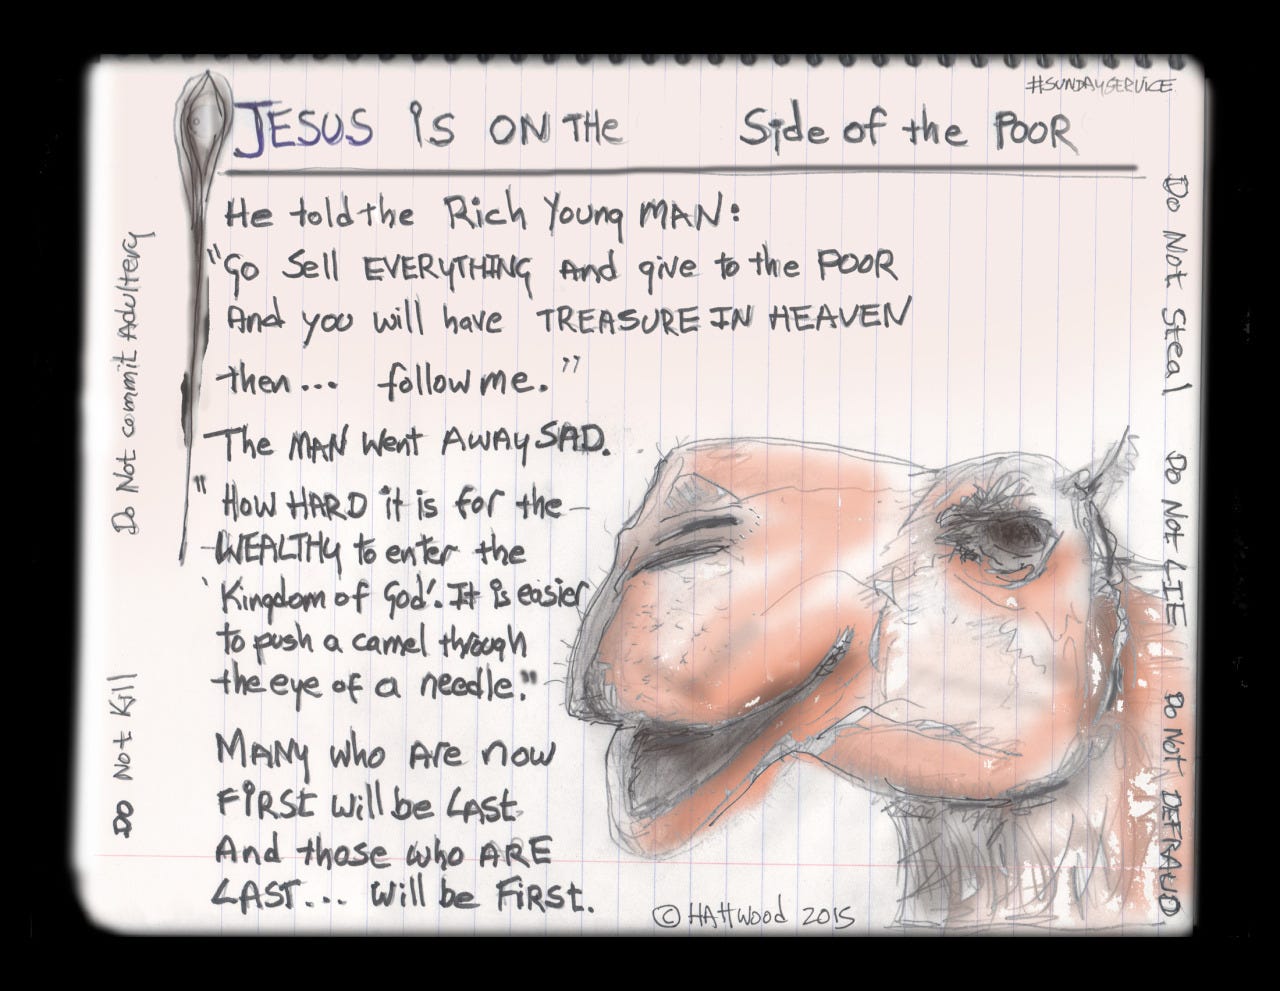 #SUNDAYSERVICE
JESUS is ON THE Side of the POOR
He told the Rich Young MAN:
"Go Sell EVERYTHING And give to the POOR
And you will have TREASURE IN HEAVEN
then... follow me."
The MAN Went AWAY SAD.
"HOW HARD it is for the
WEALTHY to enter the
'Kingdom of God'. It is easier
to push a camel through
the eye of a needle."
MANY who are now
FIRST will be LAST
And those who ARE
LAST... will be FiRST.
© HAttwood 2015
Do Not commit Adultery
Do Not Kill
Do Not Steal
Do Not LIE
Do Not DEFRAUD